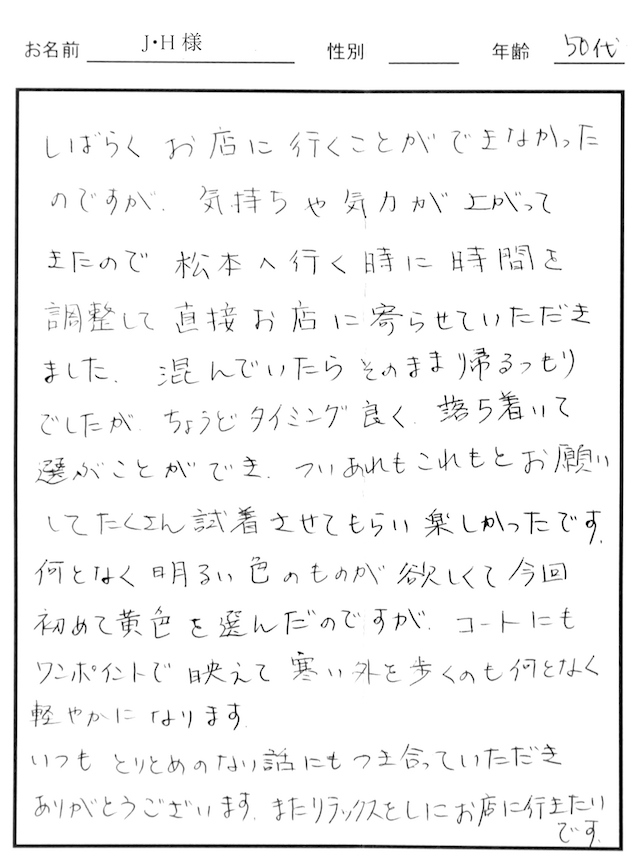 お名前 J・H様 性別 年齢 50代
しばらく お店に 行くことが できなかった
のですが、気持ちや気力が上がって
きたので 松本へ行く時に時間を
調整して直接お店に寄らせていただき
ました。混んでいたらそのまま帰るつもり
でしたが、ちょうどタイミング良く、落ち着いて
選ぶことができ、ついあれもこれもとお願い
してたくさん試着させてもらい楽しかったです。
何となく明るい色のものが欲しくて今回
初めて黄色を選んだのですが、コートにも
ワンポイントで映えて寒い外を歩くのも何となく
軽やかになります。
いつもとりとめのない話にもつき合っていただき
ありがとうございます。またリラックスをしにお店に行きたい
です。